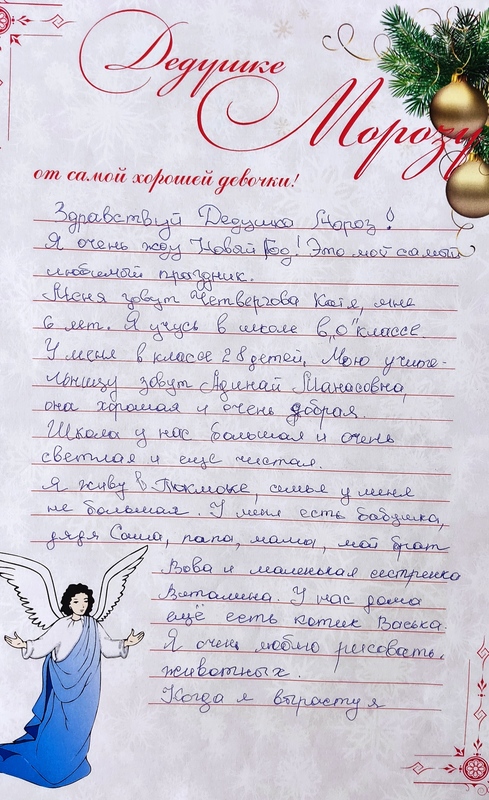 Дедушке
Морозу
от самой хорошей девочки!
Здравствуй Дедушка Мороз!
Я очень жду Новый Год! Это мой самый
любимый праздник.
Меня зовут Четвергова Катя, мне
6 лет. Я учусь в школе в „0" классе
У меня в классе 28 детей, Мою учите-
льницу зовут Адинай Манасовна,
она хорошая и очень добрая.
Школа у нас большая и очень
светлая и ещё чистая.
Я живу в Токмоке, семья у меня
не большая. У меня есть бабушка,
дядя Саша, папа, мама, мой брат
Вова и маленькая сестренка
Виталина. У нас дома
ещё есть котик Васька.
Я очень люблю рисовать
животных.
Когда я вырасту я